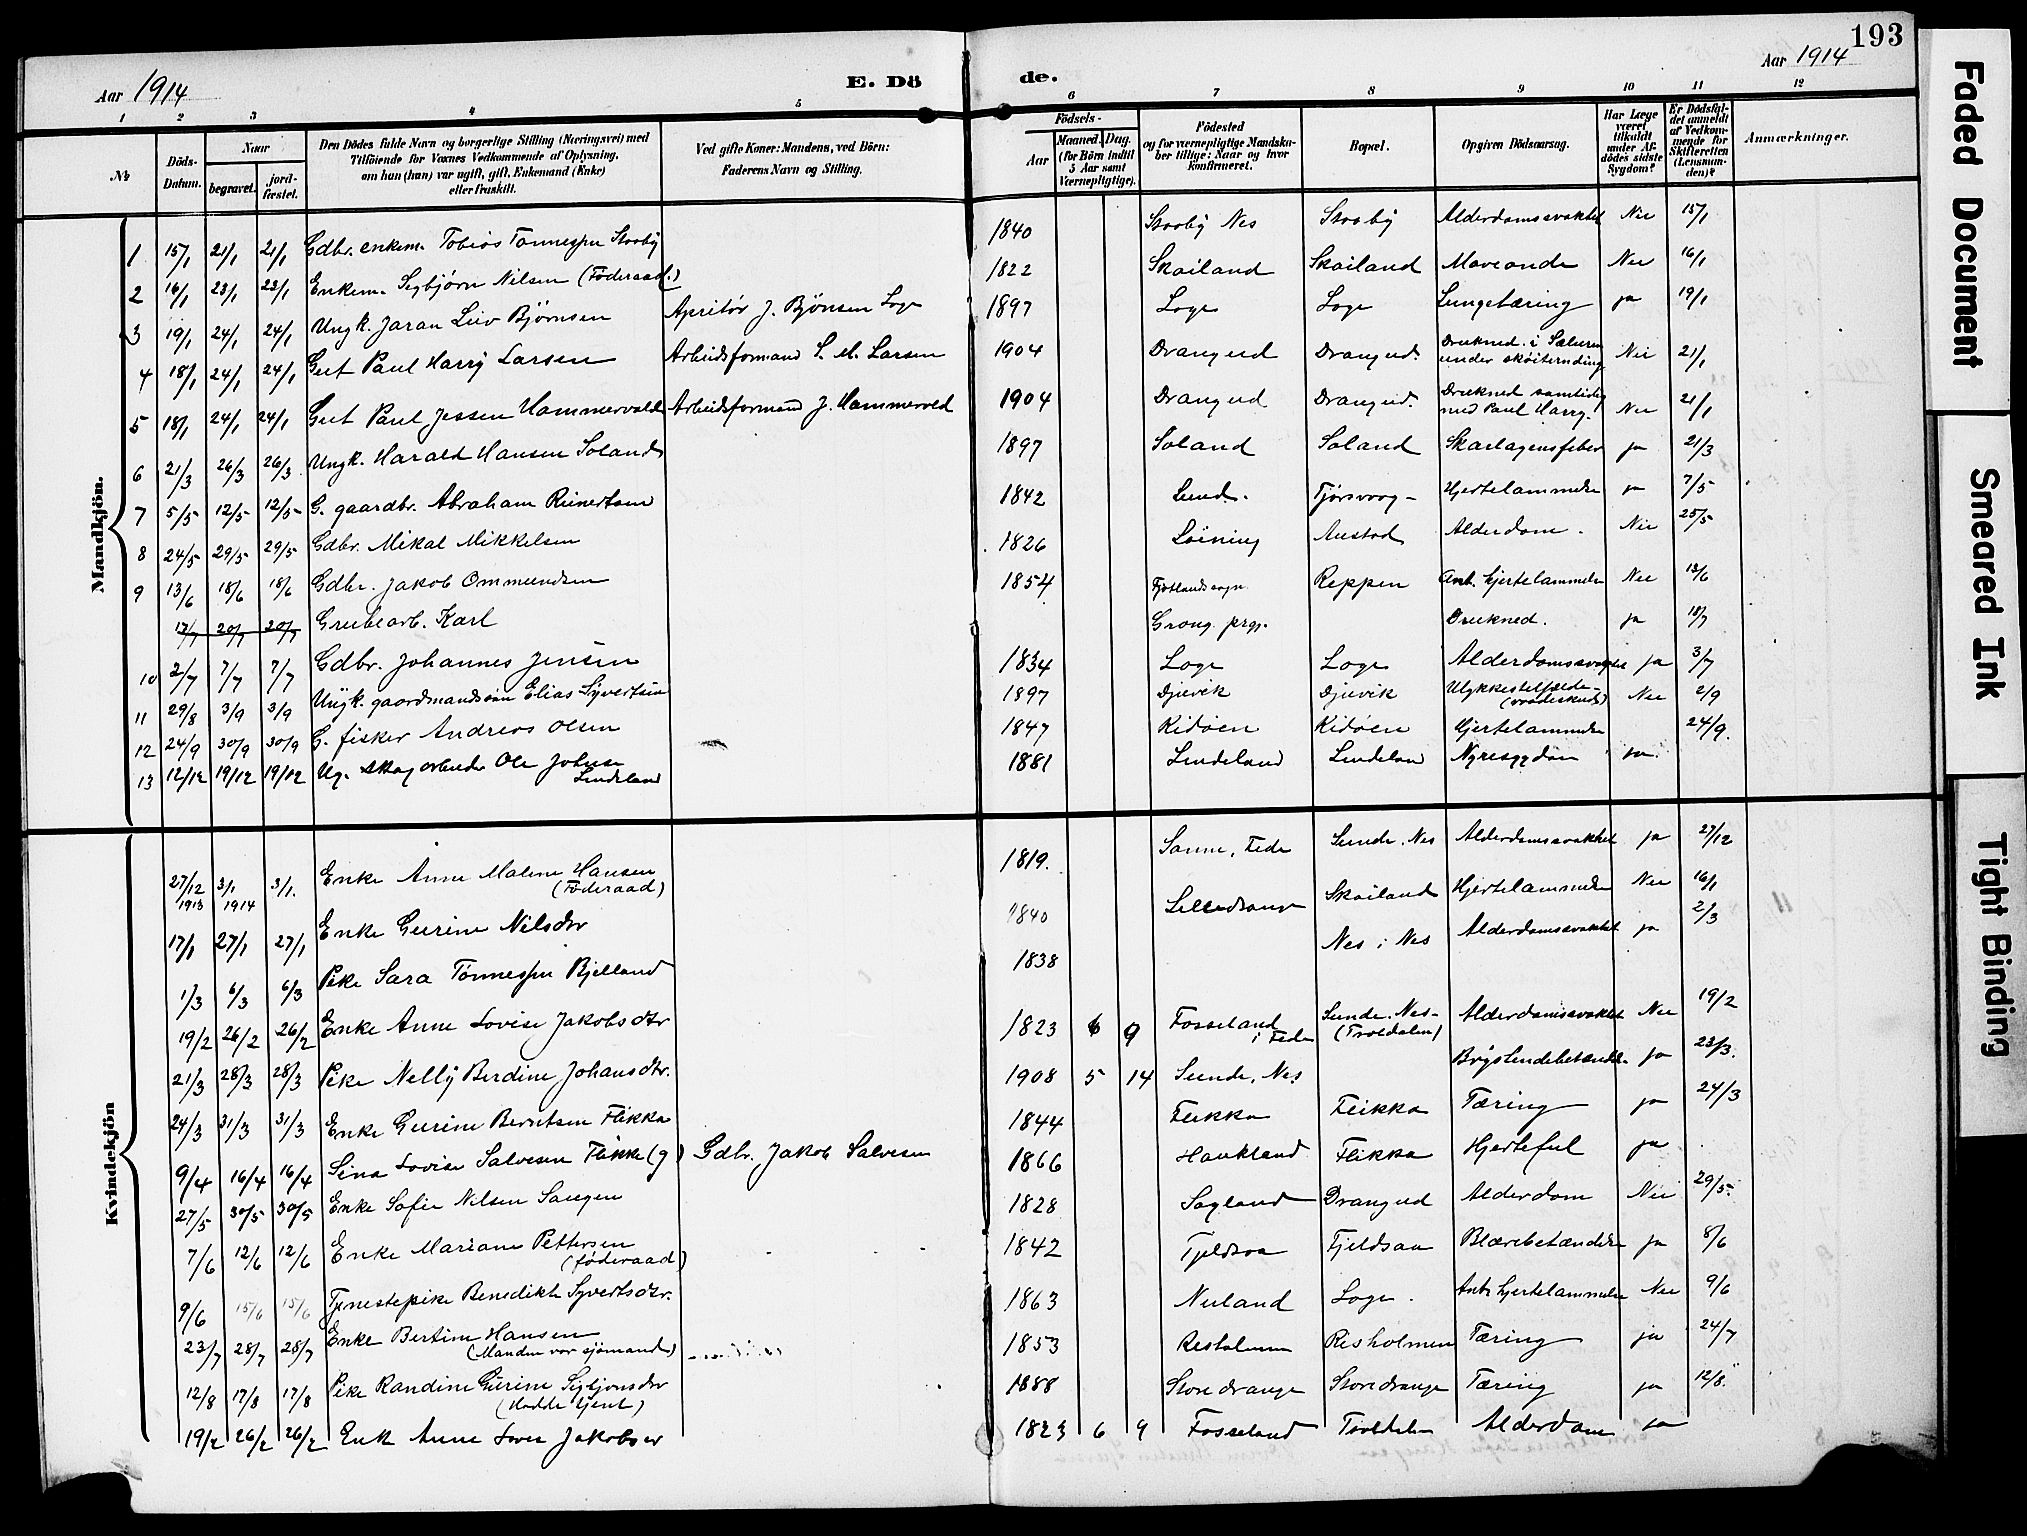 193
Aar 1914
E. Dö
de.
Aar 1914
1 2 3 4 5 6 7 8 9 10 11 12
No
Döds-Datum.
Naar
begravet.
jord-fæstet.
Den Dödes fulde Navn og borgerlige Stilling (Næringsvei) med
Tilföiende for Voxnes Vedkommende af Oplysning,
om han (hun) var ugift, gift, Enkemand (Enke)
eller fraskilt.
Ved gifte Koner: Mandens, ved Börn:
Faderens Navn og Stilling.
Födsels-
Aar
Maaned. Dag.
(for Börn indtil
5 Aar samt
Værnepligtige).
Födested
og for værnepligtige Mandska-
ber tillige: Naar og hvor
konfirmeret.
Bopæl.
Opgiven Dödsaarsag.
Har Læge
været
tilkaldt
under Af-
dödes sidste
Sygdom?
Er Dödsfal-
det anmeldt
af Vedkom-
mende for
Skifteretten
(Lensman-
den)?
Anmærkninger.
Mandkjön.
1 15/1 21/1 21/1 Gdbr. enkem. Tobias Tønnessen Stooby 1840 Stooby Nes Stooby Alderdomssvakhet Nei 15/1
2 16/1 23/1 23/1 Enkem. Sigbjørn Nilsen (Føderaad.) 1822 Skailand Skailand Maveonde Nei 16/1
3 19/1 24/1 24/1 Ungk. Jaran Liv Bjørnsen J. Bjørnsen Loge 1897 Loge Loge Lungetæring ja 19/1
4 18/1 24/1 24/1 Gut Paul Harry Larsen Arbeidsformand L. M. Larsen 1904 Drangeid Drangeid. Drukned i
under Nei 21/1
5 18/1 24/1 24/1 Gut Paul Jessen Hammervold Arbeidsformand J. Hammervold 1904 Drangeid Drangeid. Drukned samtidig
med Paul Harry. Nei 21/1
6 21/3 26/3 26/3 Ungk. Harald Hansen Soland 1897 Soland Soland Skarlagensfeber ja 21/3
7 5/5 12/5 12/5 G. gaardbr. Abraham Reinertsen 1842 Lund. Tjørsvaag Hjertelammelse ja 7/5
8 24/5 29/5 29/5 Gdbr. Mikal Mikkelsen 1826 Løining Austad Alderdom. Nei 25/5
9 13/6 18/6 18/6 Gdbr. Jakob Ommundsen 1854 Fjotlandssogn Reppen Ant. hjertelammelse Nei 13/6
17/7 20/7 20/7 Grubearb. Karl Grong prgj. Drukned. ja 18/7
10 2/7 7/7 7/7 Gdbr. Johannes Jensen 1834 Loge Loge Alderdomssvakhet ja 3/7
11 29/8 3/9 3/9 Ungk. gaardmandssøn Elias Syvertsen 1897 Djuvik Djuvik Ulykkestilfælde
(vaadeskud) Nei 2/9
12 24/9 30/9 30/9 G. fisker Andreas Olsen 1847 Kidøen Kidøen Hjertelammelse 24/9.
13 12/12 19/12 19/12 Ug. skogarbeider Ole Johnsen
Lindeland 1881 Lindeland Lindeland Nyresygdom ja.
Kvindekjön
27/12
1913 3/1
1914 3/1. Enke Anne Malene Hansen
(Føderaad) 1819. Sanne, Fede Sunde, Nes Alderdomssvakhet ja 27/12
17/1 27/1 27/1 Enke Gurine Nilsdtr 1840 Lilledrange Skailand Hjertelammelse Nei 16/1
1/3 6/3 6/3 Pike Sara Tønnessen Bjelland 1838 Nes i Nes Alderdomssvakhet ja 2/3
19/2 26/2 26/2 Enke Anne Lovise Jakobsdtr 1823 6 9 Fosseland
i Fede Sunde. Nes-
(Troldalen) Alderdomssvakhet Nei 19/2
21/3 28/3 28/3 Pike Nelly Berdine Johansdtr. 1908 5 14 Sunde, Nes ja 23/3.
24/3 31/3 31/3 Enke Gurine Berntsen Flikka 1844 Flikka Flikka Tæring ja 24/3
9/4 16/4 16/4 Lina Lovise Salvesen Flikka (g) Gdbr. Jakob Salvesen 1866 Haukland Flikka Hjertefeil ja
27/5 30/5 30/5 Enke Sofie Nilsen Saugen 1828 Sagland Drangeid Alderdom Nei 29/5.
7/6 12/6 12/6 Enke Mariane Pettersen
(føderaad) 1842 Fjeldsaa Fjeldsaa Blærebetændelse ja 8/6
9/6 15/6 15/6 Tjenestepike Benedikte Syvertsdtr. 1863 Nuland Loge. Ant. hjertelammelse Nei 9/6
23/7 28/7 28/7 Enke Bertine Hansen
(Manden var sjømand) 1853 Risholmen Risholmen Tæring ja 24/7
12/8 17/8 17/8 Pike Randine Gurine Sigbjørnsdtr 1888 Storedrange Storedrange Tæring ja 12/8.
19/2 26/2 26/2 Enk Anne Lovise Jakobsen 1823 6 9 Fosseland Troldalen Alderdom ja
Faded Document
Smeared Ink
Tight Binding